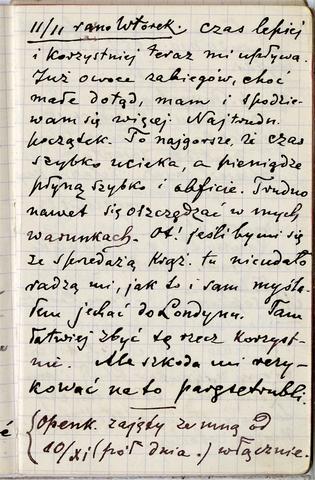 11/11 rano Wtorek. czas lepiej
i korzystniej teraz mi upływa.
Już owoce zabiegów, choć
małe dotąd, mam i spodzie-
wam się więcej. Najtrudn.
początek. To najgorsze, że czas
szybko ucieka, a pieniądze
płyną szybko i obficie. Trudno
nawet się oszczędzać w mych
warunkach. Ot! jeśli by mi się
ze sprzedażą Książ. tu nieudało
radzą mi, jak to i sam myśla-
łem jechać do Londynu. Tam
łatwiej zbyć tę rzecz korzyst-
nie. Ale szkoda mi ryzy-
kować na to paręset rubli.
{Openk. zajęty ze mną od
10/XI (pół dnia.) włącznie.
é